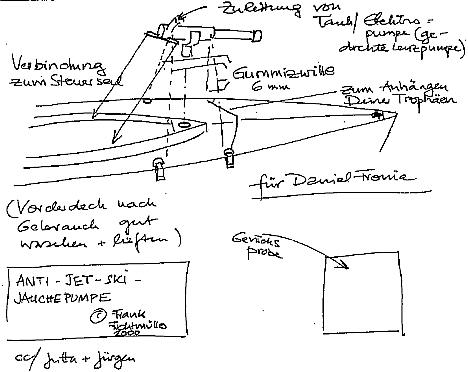 Zuleitung von
Tank/Elektro-
pumpe (ge-
drehte Lenzpumpe)
Verbindung
zum Steuerseil
Gummizwille
6 mm
zum Anhängen
Deiner Trophäen
für Daniel
(Vorderdeck nach
Gebrauch gut
waschen + lüften)
Geruchs
probe
ANTI-JET-SKI-
JAUCHEPUMPE
© Frank
2000
cc/ Jutta + Jürgen